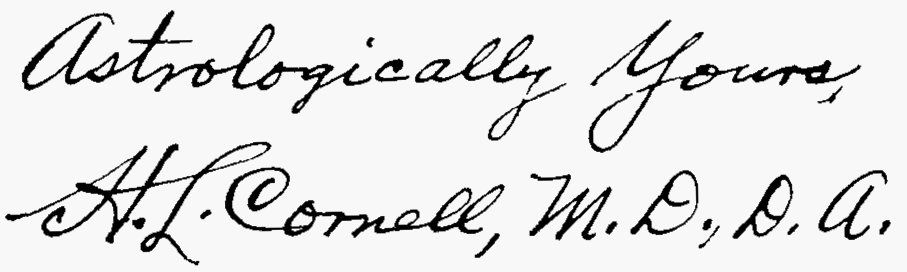 Astrologically Yours,
H. L. Cornell, M. D., D. A.